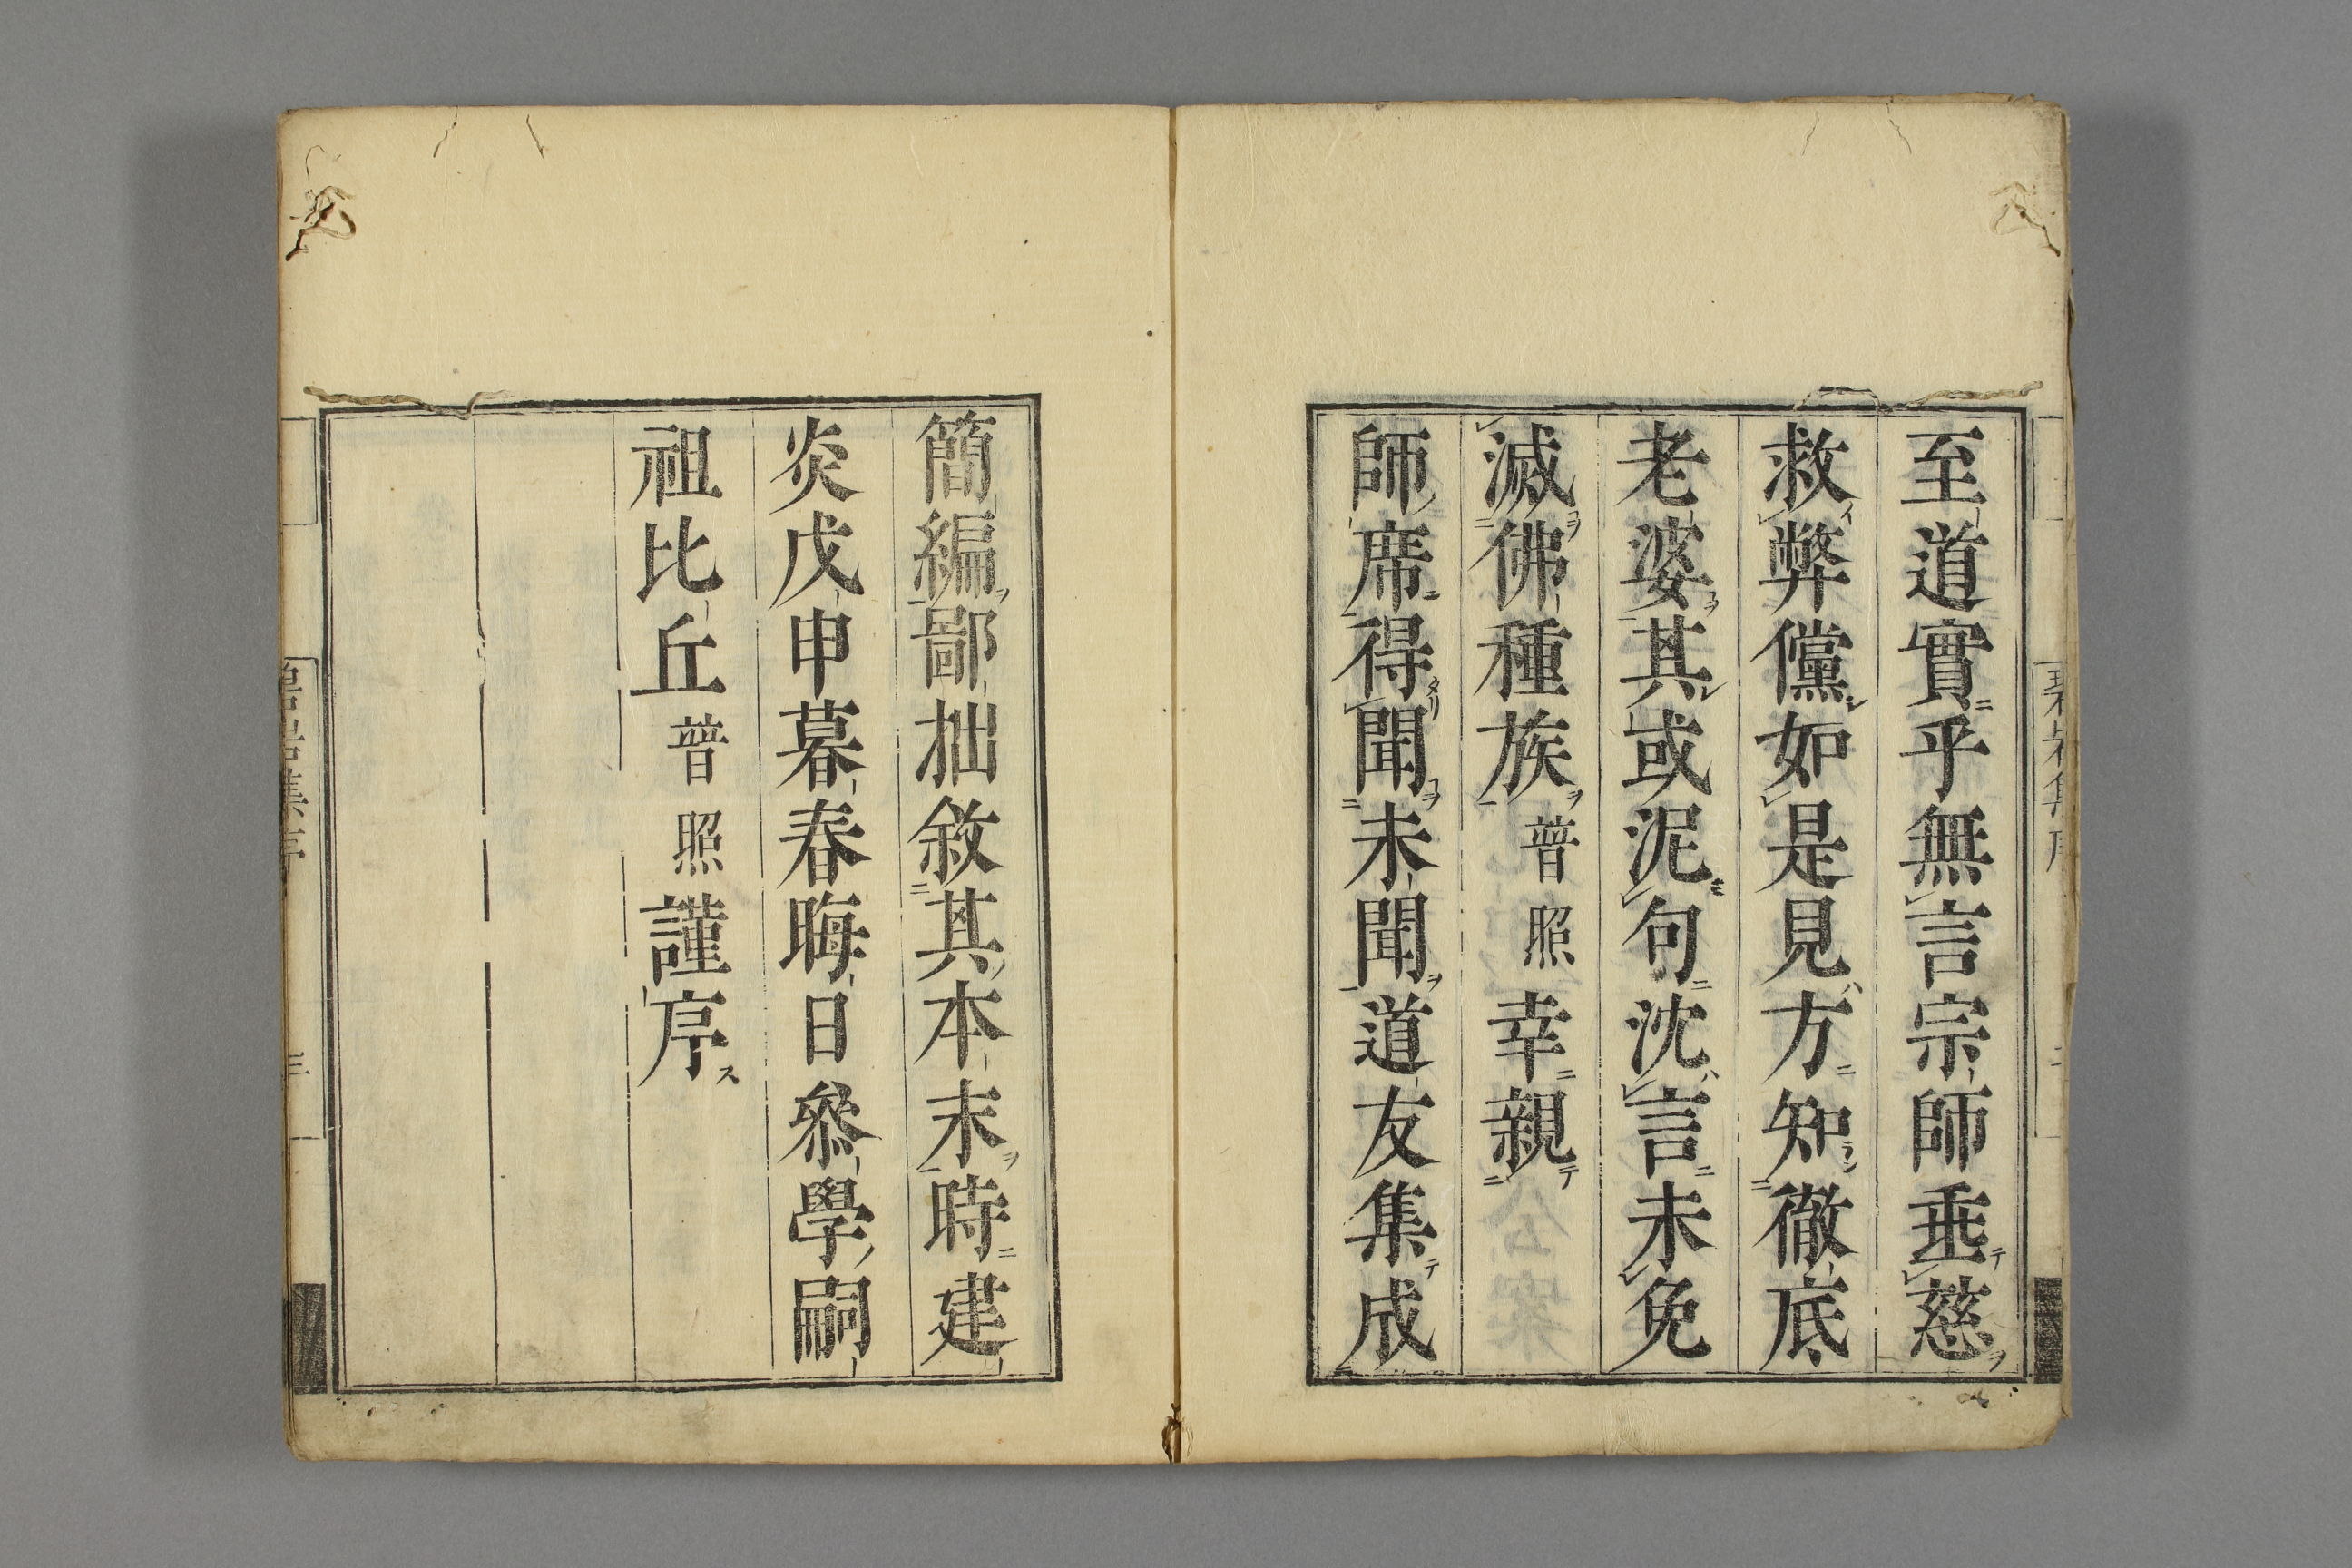 至道實乎無言宗師垂慈
救弊儻如是見方知徹底
老婆其或泥句沈言未免
滅佛種族普照幸親
師席得聞未聞道友集成
簡編鄙拙敘其本末時建
炎戊申暮春晦日叅學嗣
祖比丘普照謹序